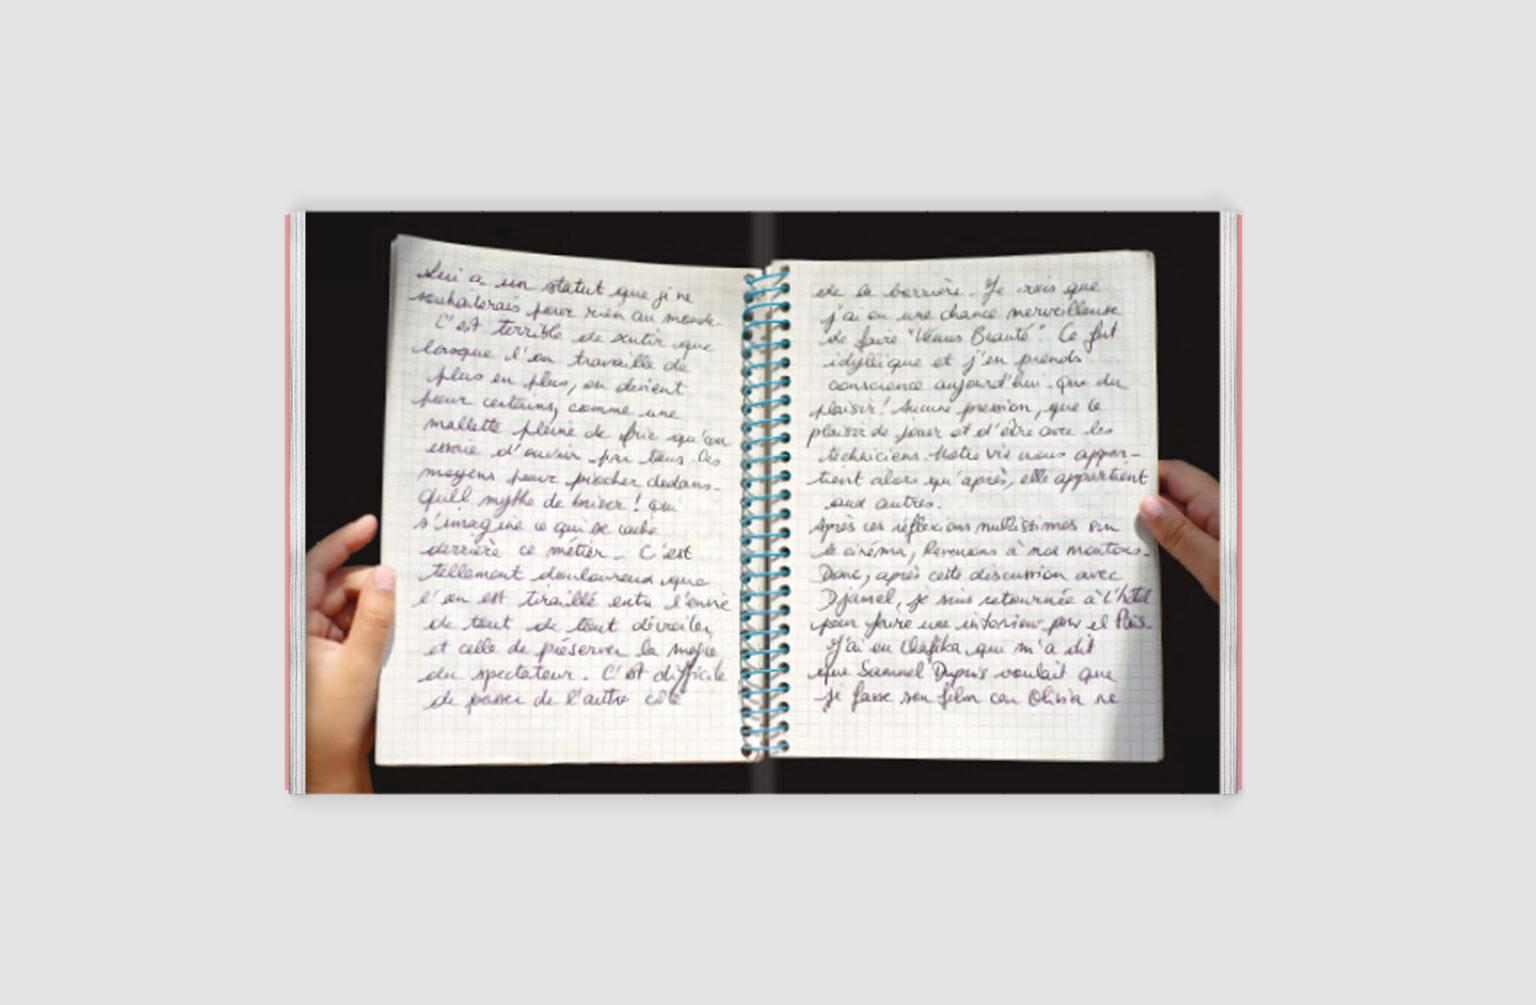 qui a un statut que je ne
souhaiterais pour rien au monde.
C'est terrible de sentir que
lorsque l'on travaille de
plus en plus, on devient
pour certains, comme une
mallette pleine de fric qu'on
essaie d'ouvrir par tous les
moyens pour piocher dedans.
Quel mythe de briser ! Qui
s'imagine ce qui se cache
derrière ce métier. C'est
tellement douloureux que
l'on est tiraillé entre l'envie
de tout de tout dévoiler,
et celle de préserver la magie
du spectateur. C'est difficile
de passer de l'autre côté
de la barrière. Je crois que
j'ai eu une chance merveilleuse
de faire "Vénus Beauté". Ce fut
idyllique et j'en prends
conscience aujourd'hui. Que du
plaisir ! Aucune pression, que le
plaisir de jouer et d'être avec les
techniciens. Notre vie nous appar-
tient alors qu'après, elle appartient
aux autres.
Après ces réflexions nullissimes sur
le cinéma, Revenons à nos moutons.
Donc, après cette discussion avec
Djamel, je suis retournée à l'hôtel
pour faire une interview pour el País.
J'ai eu Chafika qui m'a dit
que Samuel Dupuis voulait que
je fasse son film car Olivia ne